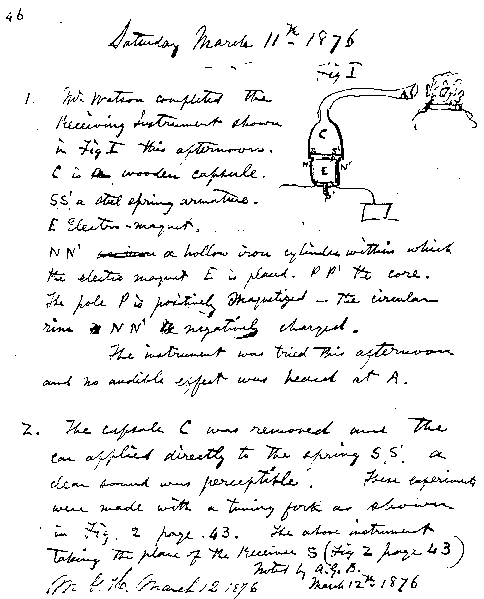 46
Saturday March 11th 1876
Fig I
1. Mr. Watson completed the
Receiving Instrument shown
in Fig I this afternoon.
C is a wooden capsule.
SS' a steel spring armature.
E Electro-magnet.
NN' a hollow iron cylinder within which
the electro magnet E is placed. PP' the core.
The pole P is positively magnetized — the circular
rim NN' negatively charged.
The instrument was tried this afternoon
and no audible effect was heard at A.
2. The capsule C was removed and the
ear applied directly to the spring SS'. a
clear sound was perceptible. These experiments
were made with a tuning fork as shown
in Fig. 2 page 43. The above instrument
taking the place of the Receiver S (Fig 2 page 43)
Noted by A.G.B.
March 12 1876
March 12th 1876
C
E
N
N'